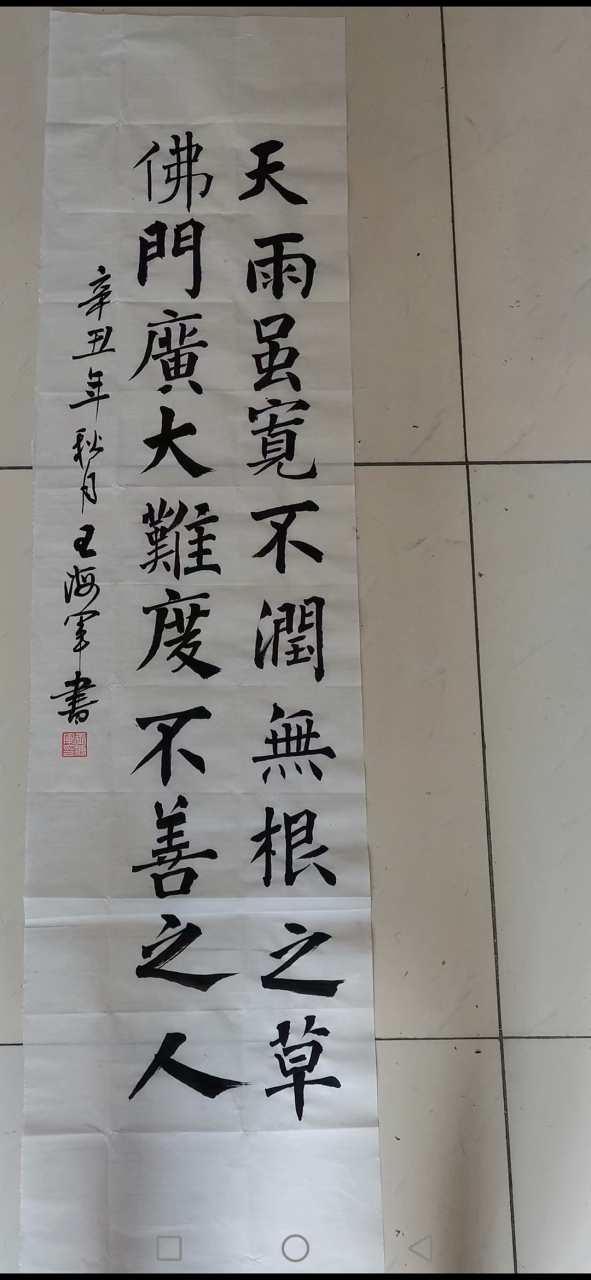 天雨虽寬不潤無根之草
佛門廣大難度不善之人
辛丑年秋月王海军書